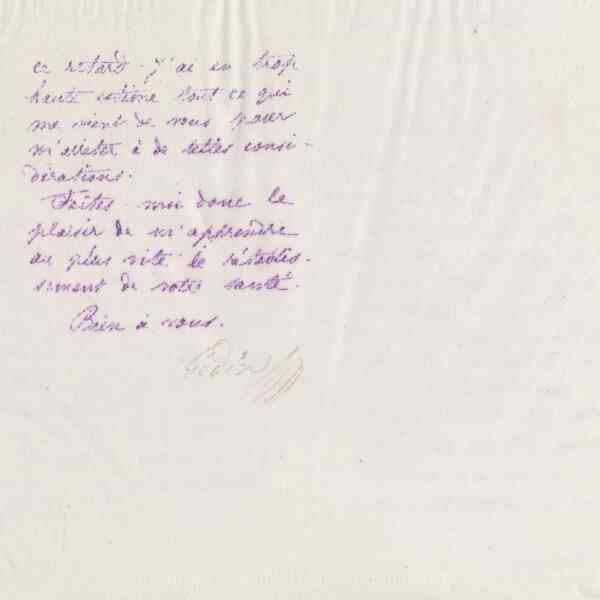 ce retard. j'ai en trop
haute estime tout ce qui
me vient de vous pour
m'arrêter à de telles consi-
dérations.
Faites-moi donc le
plaisir de m'apprendre
au plus vite le rétablis-
sement de votre santé.
Bien à vous.